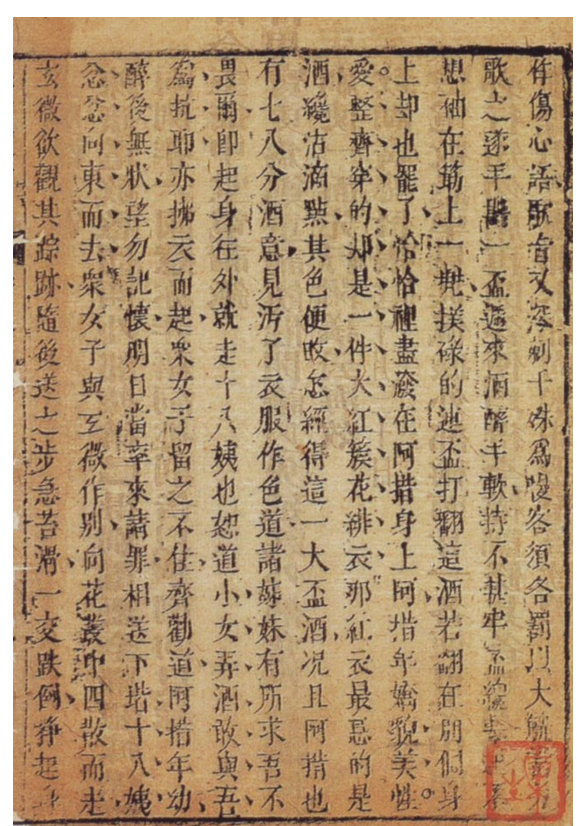 作傷心語歌旨又深刺予殊爲慢客須各罰以大觥當另
歌之遂手斟一盃遞來酒醉手軟持不甚牢盃纔舉起不
想袖在筯上一兠撲碌的連盃打翻這酒若翻在別個身
上却也罷了恰恰裡盡潑在阿措身上阿措年嬌貌美性
愛整齊穿的却是一件大紅簇花緋衣那紅衣最忌的是
酒纔沾滴點其色便敗怎經得這一大盃酒况且阿措也
有七八分酒意見汚了衣服作色道諸姊妹有所求吾不
畏爾卽起身往外就走十八姨也怒道小女弄酒敢與吾
爲抗耶亦拂衣而起衆女子留之不住齊勸道阿措年幼
醉後無狀望勿記懷明日當率來請罪相送下堦十八姨
忿忿向東而去衆女子與玄微作別向花叢中四散而走
玄微欲觀其踪跡隨後送之步急苔滑一交跌倒掙起身